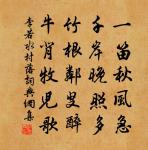 一笛秋風急
千岸晚照多
竹根鄰叟醉
牛背牧兒歌
李若水村落詞典網集